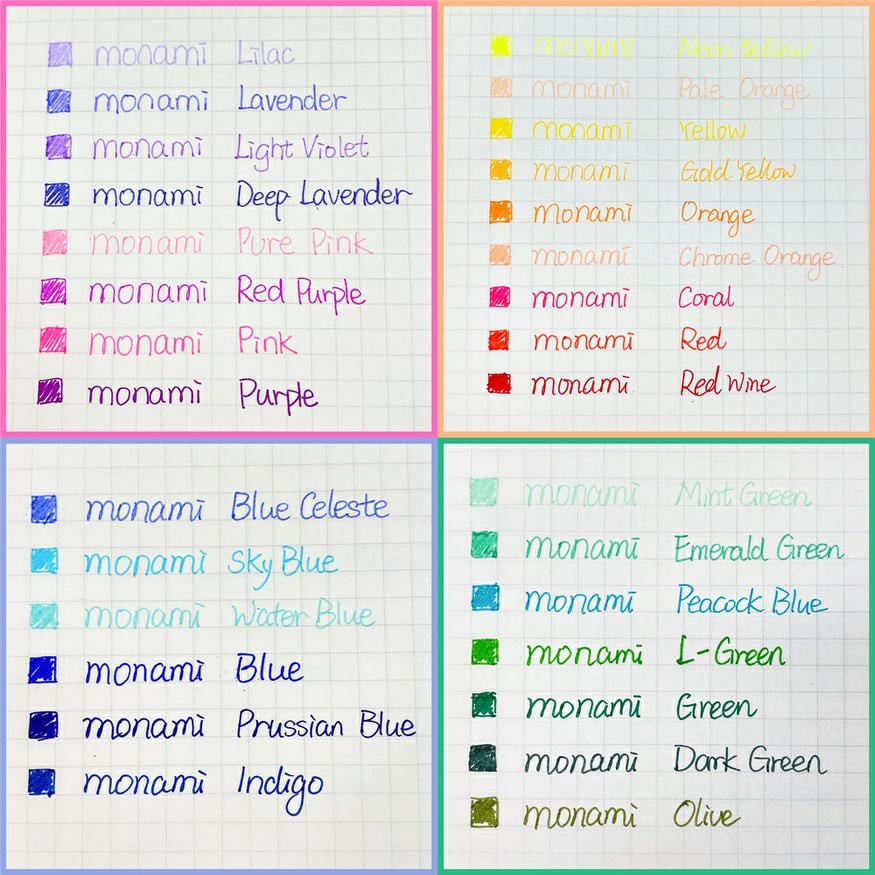 monami Lilac
monami Lavender
monami Light Violet
monami Deep Lavender
monami Pure Pink
monami Red Purple
monami Pink
monami Purple
monami Neon Yellow
monami Pale Orange
monami Yellow
monami Gold Yellow
monami Orange
monami Chrome Orange
monami Coral
monami Red
monami Red Wine
monami Blue Celeste
monami Sky Blue
monami Water Blue
monami Blue
monami Prussian Blue
monami Indigo
monami Mint Green
monami Emerald Green
monami Peacock Blue
monami L-Green
monami Green
monami Dark Green
monami Olive